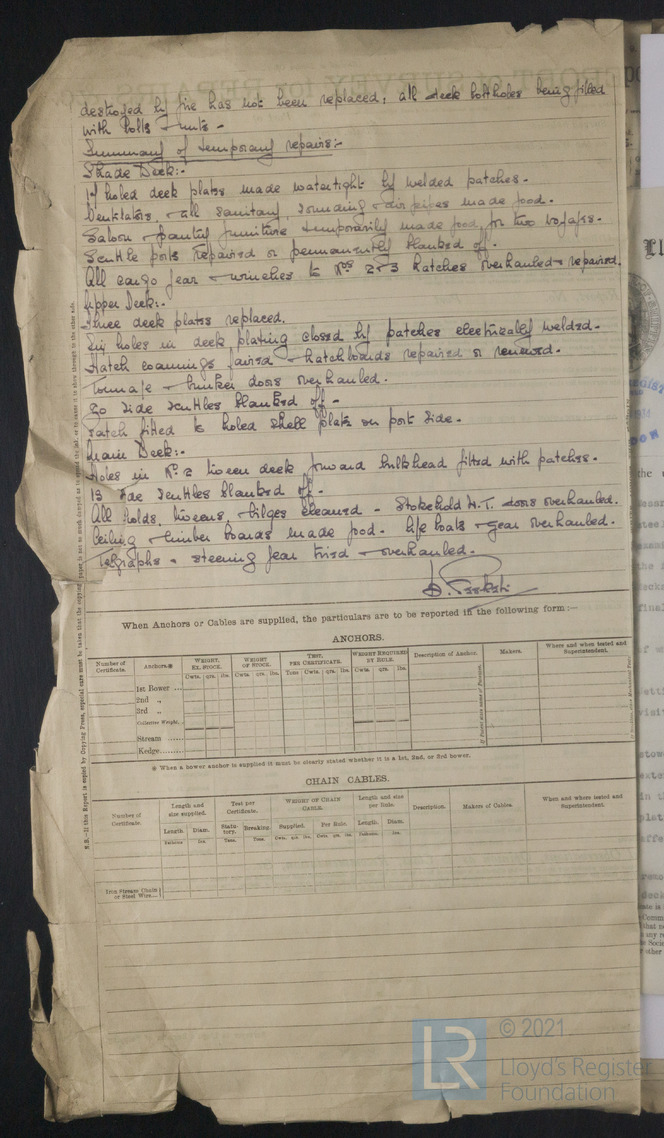 destroyed by fire has not been replaced; all deck boltholes being filled
with bolts & nuts -
Summary of temporary repairs:-
Shade Deck:-
holed deck plates made watertight by welded patches -
Ventilators, & all sanitary, sounding & air pipes made good.
Saloon & pantry furniture temporarily made good, for two voyages -
Scuttle ports repaired or permanently blanked off -
All cargo gear & winches to Nos 2 & 3 hatches overhauled & repaired.
Upper Deck:-
Three deck plates replaced.
Six holes in deck plating closed by patches electrically welded -
Hatch coamings faired & hatchboards repaired or renewed -
Tonnage & bunker doors overhauled.
20 side scuttles blanked off -
Patch fitted to holed shell plate on port side -
Main Deck:-
Holes in No. 2 tween deck forward bulkhead fitted with patches -
13 side scuttles blanked off -
All holds, tweens & bilges cleaned - Stokehold W.T. doors overhauled.
Ceiling & limber boards made good - Life boats & gear overhauled.
Telegraphs & steering gear tried & overhauled -
When Anchors or Cables are supplied, the particulars are to be reported in the following form :—
ANCHORS.
Number of Certificate. Anchors.* WEIGHT, EX. STOCK. WEIGHT OF STOCK. TEST, PER CERTIFICATE. WEIGHT REQUIRED BY RULE. Description of Anchor. Makers. Where and when tested and Superintendent.
Cwts. qrs. lbs. Cwts. qrs. lbs. Tons Cwts. qrs. lbs. Cwts. qrs. lbs.
1st Bower ...
2nd „
3rd „
Collective Weight..
Stream ......
Kedge.........
* When a bower anchor is supplied it must be clearly stated whether it is a 1st, 2nd, or 3rd bower.
CHAIN CABLES.
Number of Certificate. Length and size supplied. Test per Certificate. WEIGHT OF CHAIN CABLE. Length and size per Rule. Description. Makers of Cables. When and where tested and Superintendent.
Length. Diam. Statutory. Breaking. Supplied. Per Rule. Length. Diam.
Fathoms Ins. Tons. Tons. Cwts. qrs. lbs. Cwts. qrs. lbs. Fathoms. Ins.
Iron Stream Chain or Steel Wire...
LR
© 2021
Lloyd's Register
Foundation